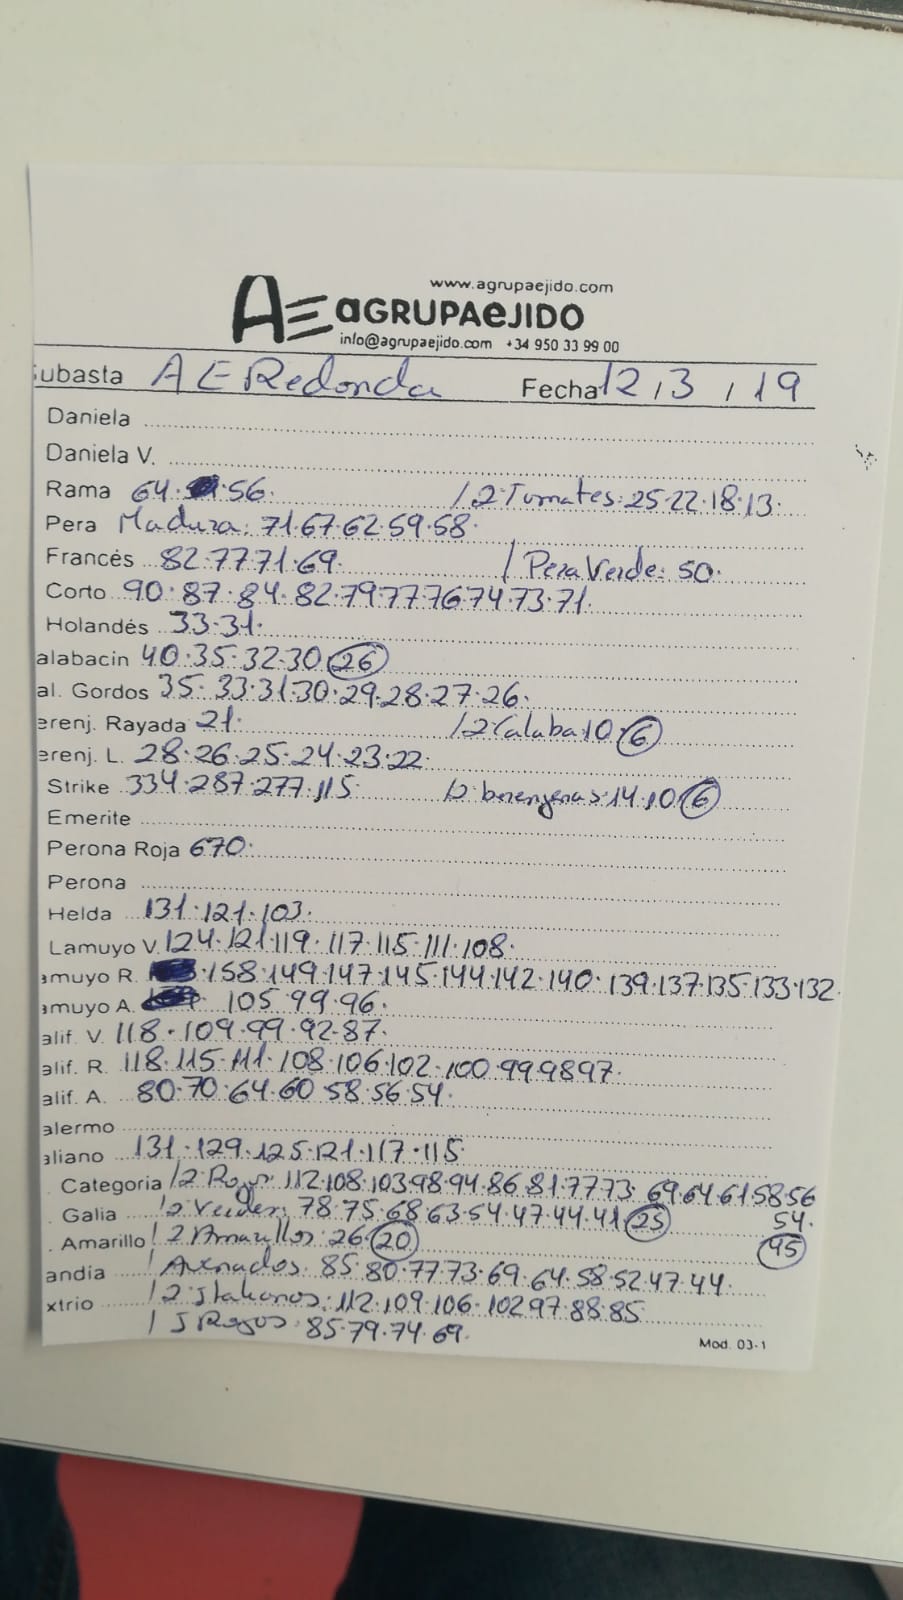 www.agrupaejido.com
AE aGRUPAeJIDO
info@agrupaejido.com +34 950 33 99 00
ubasta A E Redonda Fecha 12, 3, 19
Daniela
Daniela V.
Rama 64. 56. / 2 Tomates: 25.22.18.13.
Pera Madura: 71.67.62.59.58.
Francés 82.77.71.69. / Pera Verde: 50.
Corto 90.87.84.82.79.77.76.74.73.71.
Holandés 33.31.
alabacin 40.35.32.30 (26)
al. Gordos 35.33.31.30.29.28.27.26.
erenj. Rayada 21. / 2 Calaba 10 (6)
erenj. L. 28.26.25.24.23.22.
Strike 334.287.277.115 berengenas: 14.10 (6)
Emerite
Perona Roja 670.
Perona
Helda 131.121.103.
Lamuyo V. 124.121.119.117.115.111.108.
amuyo R. 158.149.147.145.144.142.140.139.137.135.133.132.
amuyo A. 105.99.96.
alif. V. 118.109.99.92.87.
alif. R. 118.115.111.108.106.102.100.99.98.97.
alif. A. 80.70.64.60.58.56.54.
alermo
aliano 131.129.125.121.117.115.
Categoria / 2 Rojos: 112.108.103.98.94.86.81.77.73. 69.64.61.58.56
Galia / 2 Verdes: 78.75.68.63.54.47.44.41 (25) 54.
Amarillo / 2 Amarillos: 26 (20) (45)
andia / Asurados: 85.80.77.73.69.64.58.52.47.44.
xtrio / 2 Italianos: 112.109.106.102.97.88.85.
/ J Rojos: 85.79.74.69.
Mod. 03-1